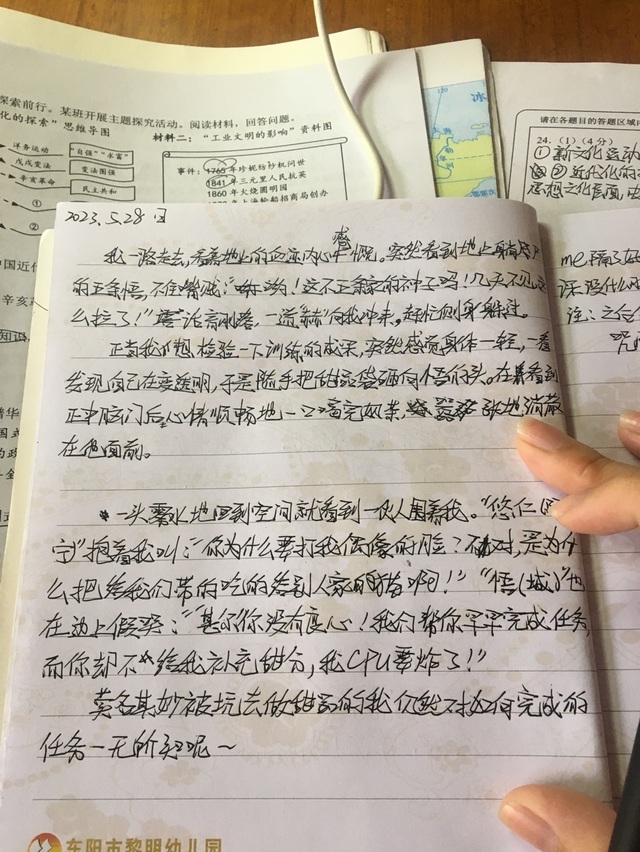 探索前行。某班开展主题探究活动。阅读材料,回答问题。
化的探索"思维导图
材料二:"工业文明的影响"资料图
洋务运动
"自强""求富"
戊戌变法
变法图强
辛亥革命
民主共和
①
②
事件:1765年珍妮纺纱机问世
1841年三元里人民抗英
1860年火烧圆明园
年上海轮船招商局创办
冰
请在各题目的答题区域内
24.(1)(4分)
①新文化运动
②近代化的
思想文化层面,
中国近代
辛亥革
知识
2023.5.28 日
我一路走去,看着地上的血迹内心感慨,突然看到地上
的五条悟,不住嘴贱:"哟!这不五条家的神子吗!几天不见
么拉了!"话音刚落,一道"赫"向我冲来。赶忙侧身躲过。
正当我想检验一下训练的成果,突然感觉身体一轻,一看
发现自己在变透明,于是随手把甜品袋砸向悟的头。在看到
正中脑门后,心情顺畅地一口喝完奶茶,嚣张地消散
在他面前。
一头雾水地回到空间就看到一伙人围着我。"悠仁
"抱着我叫:"你为什么要打我偶像的脸?不对,是为什
么把给我们带的吃的给别人家的猫啊!""悟(城)"也
在边上假哭:"甚尔你没有良心!我们帮你早早完成任务,
而你却不给我补充甜分,我CPU要炸了!"
莫名其妙被坑去做甜品的我仍然对如何完成的
任务一无所知呢~
东阳市黎明幼儿园